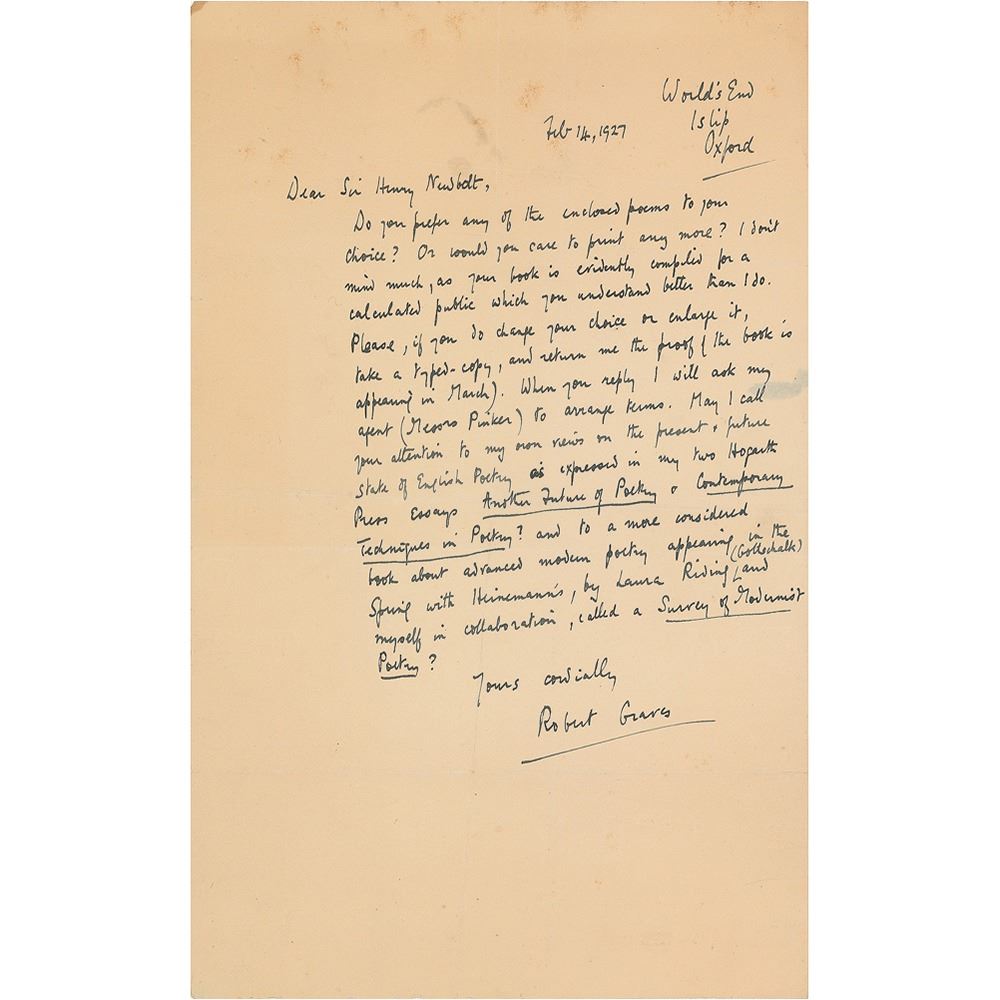 World's End
Islip
Oxford
Feb 14, 1927
Dear Sir Henry Newbolt,
Do you prefer any of the enclosed poems to your
choice? Or would you care to print any more? I don't
mind much, as your book is evidently compiled for a
calculated public which you understand better than I do.
Please, if you do change your choice or enlarge it,
take a typed-copy, and return me the proof (the book is
appearing in March). When you reply I will ask my
agent (Messrs Pinker) to arrange terms. May I call
your attention to my own views on the present & future
state of English Poetry as expressed in my two Hogarth
Press Essays Another Future of Poetry & Contemporary
Techniques in Poetry? and to a more considered
book about advanced modern poetry appearing in the
Spring with Heinemann's, by Laura Riding (Gottschalk) and
myself in collaboration, called a Survey of Modernist
Poetry?
Yours cordially
Robert Graves